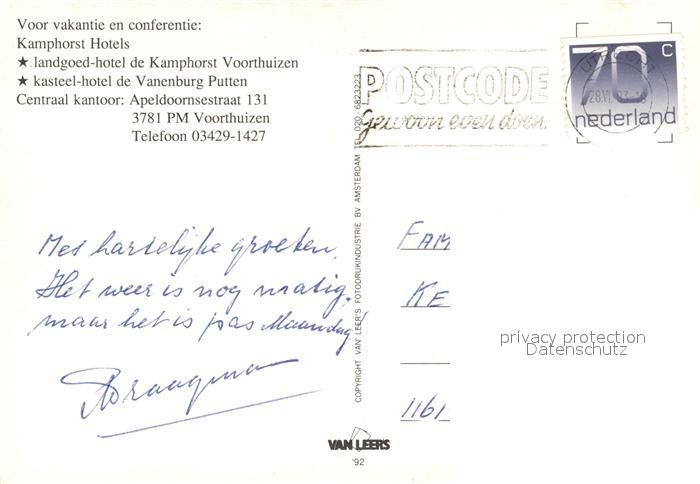 Voor vakantie en conferentie:
Kamphorst Hotels
★ landgoed-hotel de Kamphorst Voorthuizen
★ kasteel-hotel de Vanenburg Putten
Centraal kantoor: Apeldoornsestraat 131
3781 PM Voorthuizen
Telefoon 03429-1427
POSTCODE
Gewoon even doen.
70 c
nederland
28.VI.
Met hartelijke groeten,
Het weer is nog matig.
maar het is pas Maandag!
COPYRIGHT VAN LEER'S FOTODRUKINDUSTRIE BV AMSTERDAM TEL. 020 - 6823223
FAM
KE
1161
privacy protection
Datenschutz
VAN LEER'S
'92